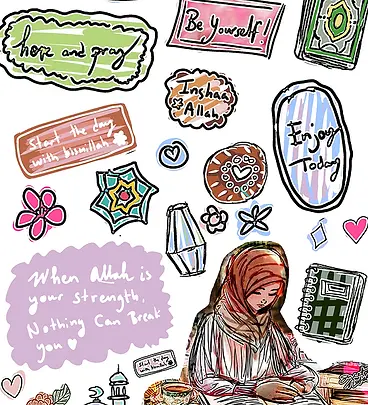 hope and pray
Be Yourself!
Inshaa
Allah
Start the day
with bismillah
Enjoy
Today
When Allah is
your strength,
Nothing Can Break
you
Start the day
with bismillah